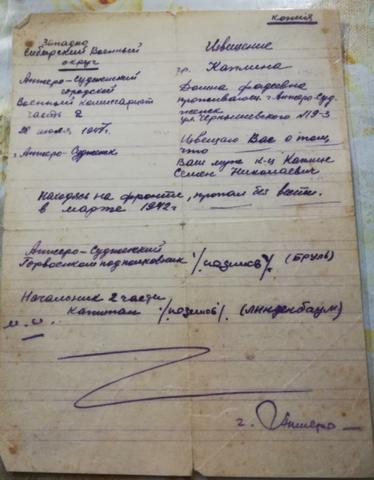 копия
Западно
Сибирский Военный
округ
Анжеро-Судженский
городской
Военный комиссариат
часть 2
июля 1947г.
г. Анжеро-Судженск
Извещение
гр. Капкина
Фадеевна
проживающ. г. Анжеро Суд-
женск
ул. Чернышевского №19-3
Извещаю Вас о том,
что
Ваш муж к-ц Капкин
Семен Николаевич
Находясь на фронте, пропал без вести.
в марте 1942 г
Анжеро-Судженский
Горвоенком подполковник /подпись/ (Бруль)
Начальник 2 части
капитан /подпись/. (Линденбаум)
м.п.
г. Анжеро